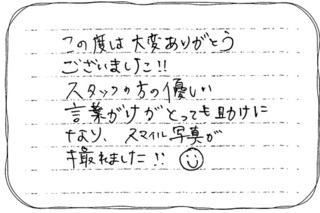 この度は大変ありがとう
ございました!!
スタッフの方の優しい
言葉がけがとっても助けに
なり、スマイル写真が
撮れました!! ☺